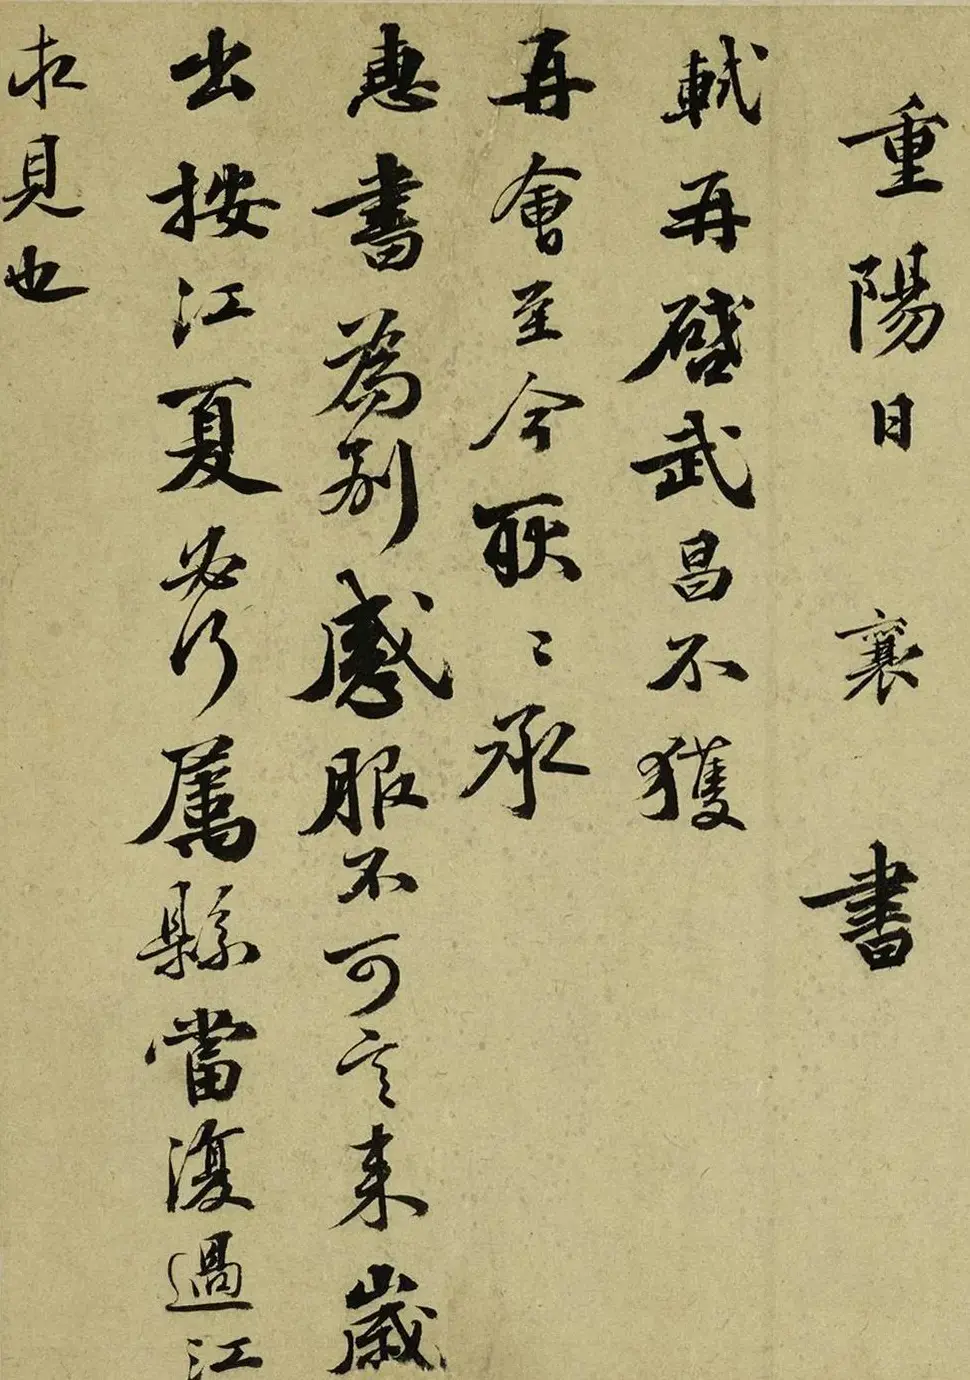 重陽日 襄 書
軾再啓武昌不獲
再會至今耿〻承
惠書爲別感服不可言来歳
出按江夏必行屬縣當復過江
求見也